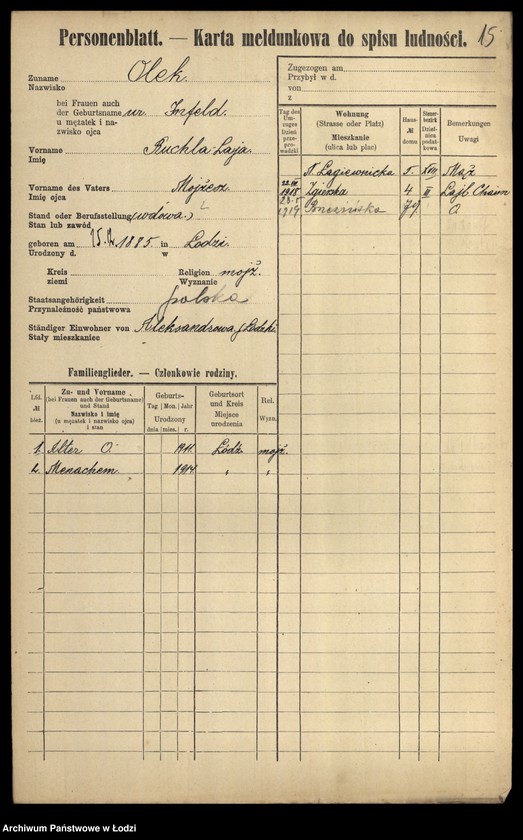 Personenblatt. — Karta meldunkowa do spisu ludności. 15
Zuname Olek
Nazwisko
bei Frauen auch
der Geburtsname ur. Infeld.
u mężatek i na-
zwisko ojca
Vorname Ruchla Laja
Imię
Vorname des Vaters Mojżesz
Imię ojca
Stand oder Berufsstellung (wdowa.)
Stan lub zawód
geboren am 15. 12. 1885 in Łodzi.
Urodzony d. w
Kreis Religion mojż.
ziemi Wyznanie
Staatsangehörigkeit polska
Przynależność państwowa
Ständiger Einwohner von Aleksandrowa, Łódzki
Stały mieszkaniec
Zugezogen am
Przybył w d.
von
z
Tag des Um-zuges Dzień prze-prowadzki
Wohnung (Strasse oder Platz) Mieszkanie (ulica lub plac)
Haus- № domu
Steuer-bezirk Dzielnica podat-kowa
Bemerkungen Uwagi
N. Łagiewnicka 5. XVII Mąż
22. III 1918 Zgierska 4 II Lajb Chaim
1919 79 O
Familienglieder. — Członkowie rodziny.
Lfd. № bież.
Zu- und Vorname (bei Frauen auch der Geburtsname) und Stand Nazwisko i imię (u mężatek i nazwisko ojca) i stan
Geburts- Tag Mon. Jahr Urodzony dnia mies. r.
Geburtsort und Kreis Miejsce urodzenia
Rel. Wyzn.
1. Alter O. 1911. Łódź mojż.
2. Menachem. 1914 " "
Archiwum Państwowe w Łodzi